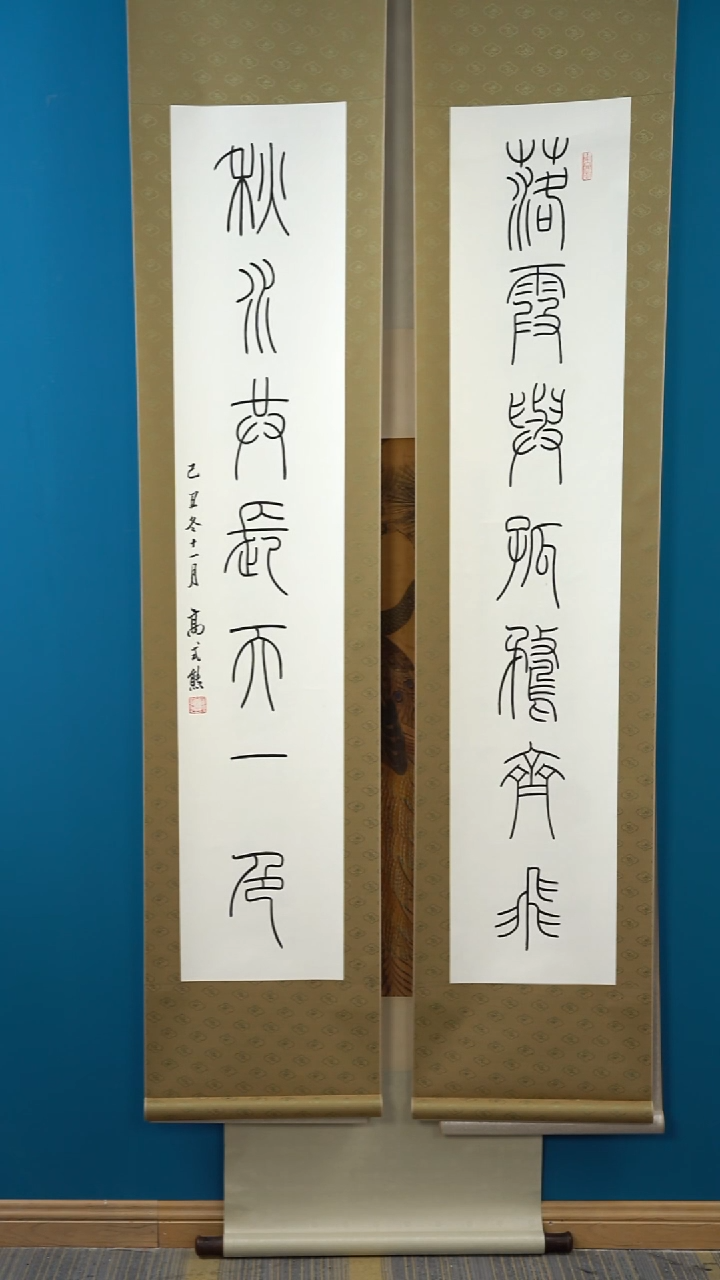 落霞與孤鶩齊飛
秋水共長天一色
己丑冬十一月 高式熊